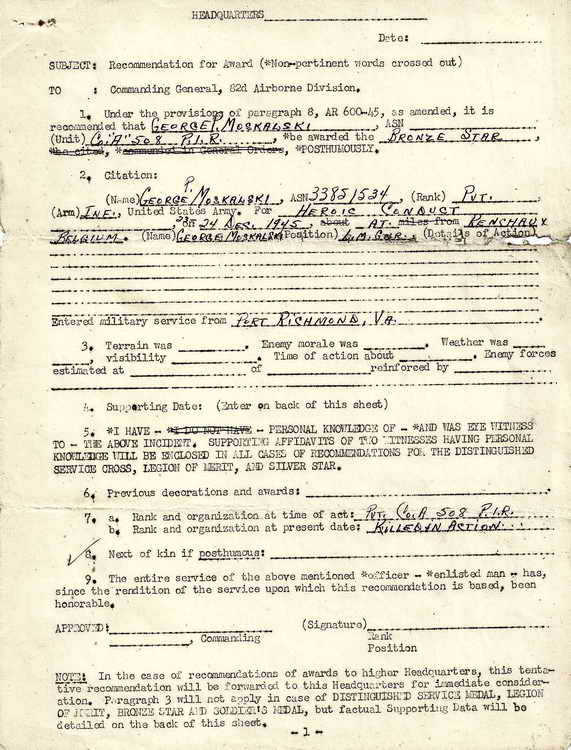 HEADQUARTERS
Date:
SUBJECT: Recommendation for Award (*Non-pertinent words crossed out)
TO : Commanding General, 82d Airborne Division.
1. Under the provisions of paragraph 8, AR 600-45, as amended, it is
recommended that GEORGE P. MOSKALSKI, ASN
(Unit) Co."A" 508 P.I.R., *be awarded the BRONZE STAR,
*be cited, *commended in General Orders, *POSTHUMOUSLY.
2. Citation:
P.
(Name) GEORGE MOSKALSKI, ASN 33851534, (Rank) PVT.,
(Arm) INF., United States Army. For HEROIC CONDUCT
, on 23-24 DEC. 1945, about AT. miles from RENCHAUX
BELGIUM. (Name) GEORGE MOSKALSKI (Position) L.M. GNR. (Details of Action)
Entered military service from PORT RICHMOND, VA.
3. Terrain was . Enemy morale was . Weather was
, visibility . Time of action about . Enemy forces
estimated at of reinforced by
4. Supporting Date: (Enter on back of this sheet)
5. *I HAVE - *I DO NOT HAVE - PERSONAL KNOWLEDGE OF - *AND WAS EYE WITNESS
TO - THE ABOVE INCIDENT. SUPPORTING AFFIDAVITS OF TWO WITNESSES HAVING PERSONAL
KNOWLEDGE WILL BE ENCLOSED IN ALL CASES OF RECOMMENDATIONS FOR THE DISTINGUISHED
SERVICE CROSS, LEGION OF MERIT, AND SILVER STAR.
6. Previous decorations and awards:
7. a. Rank and organization at time of act: PVT. Co. A 508 P.I.R.
b. Rank and organization at present date: KILLED IN ACTION
8. Next of kin if posthumous:
9. The entire service of the above mentioned *officer - *enlisted man - has,
since the rendition of the service upon which this recommendation is based, been
honorable.
APPROVED: (Signature)
, Commanding Rank
Position
NOTE: In the case of recommendations of awards to higher Headquarters, this tenta-
tive recommendation will be forwarded to this Headquarters for immediate consider-
ation. Paragraph 3 will not apply in case of DISTINGUISHED SERVICE MEDAL, LEGION
OF MERIT, BRONZE STAR AND SOLDIER'S MEDAL, but factual Supporting Data will be
detailed on the back of this sheet.
- 1 -